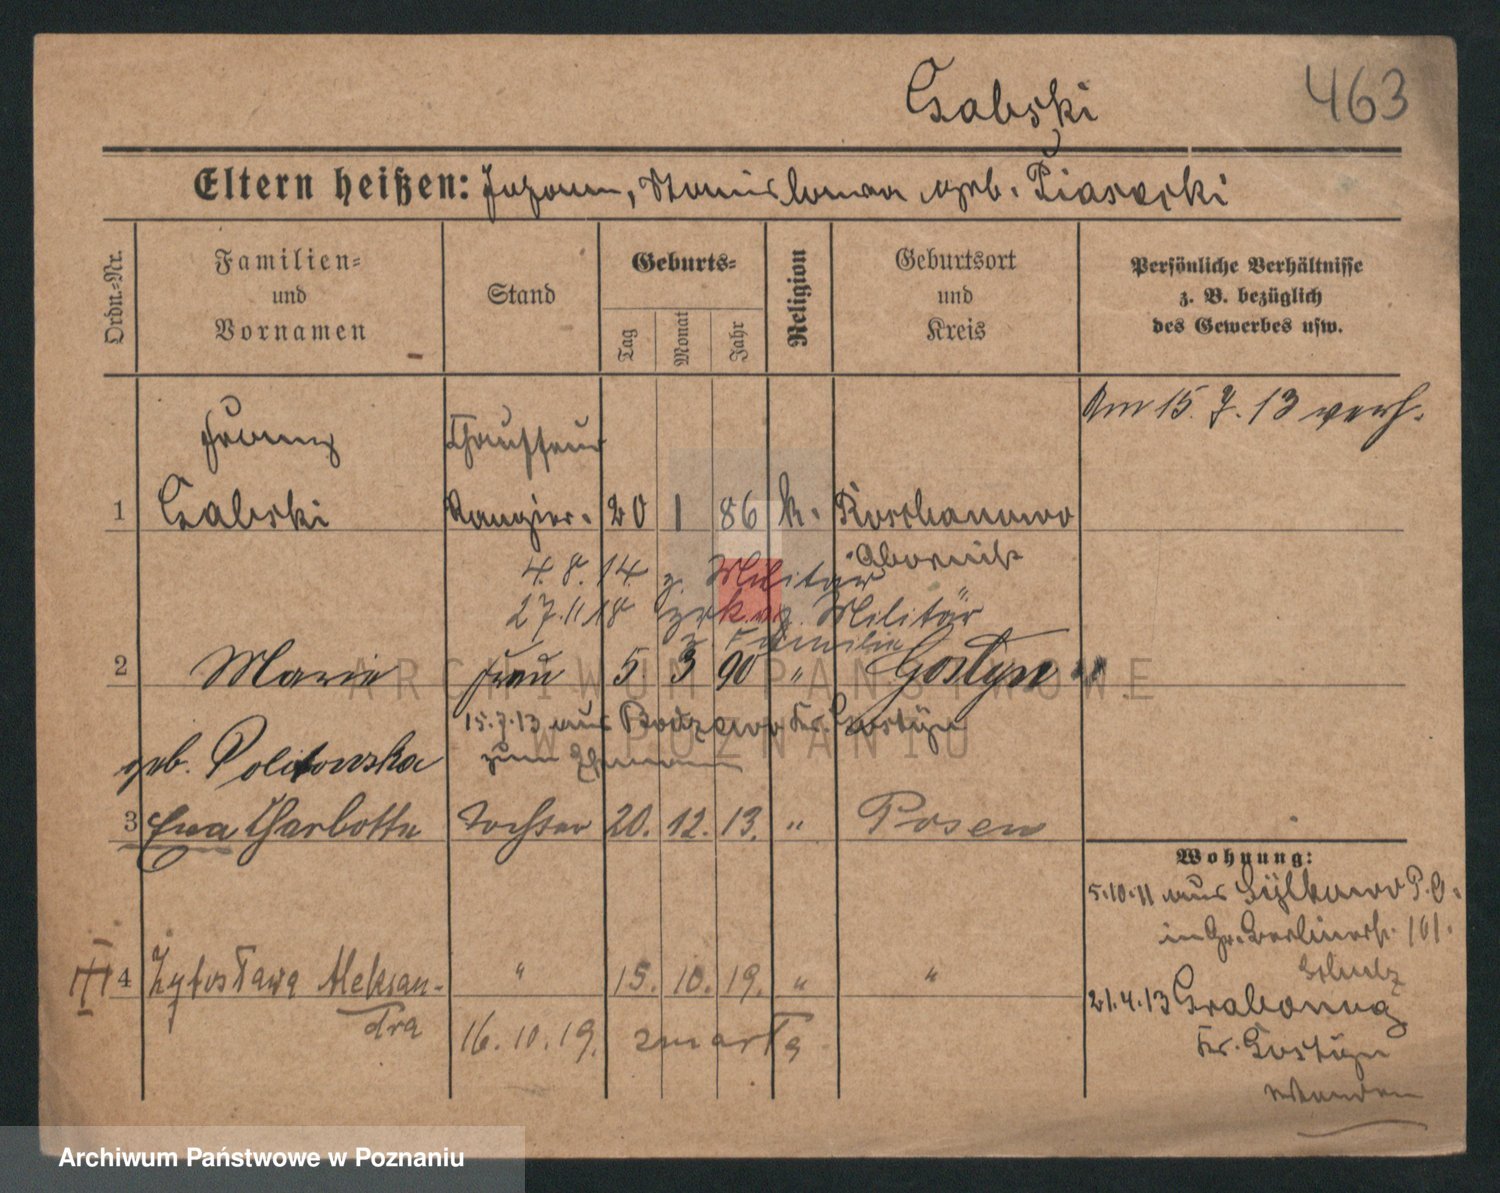 463
Czabski
Eltern heißen: Johann, Stanislawa geb. Piasecki
Ordn.-Nr.
Familien-
und
Vornamen
Stand
Geburts-
Tag
Monat
Jahr
Religion
Geburtsort
und
Kreis
Persönliche Verhältnisse
z. B. bezüglich
des Gewerbes usw.
Am 15. 7. 13 verh.
Franz
Chauffeur
1 Czabski Rangier. 20 1 86 k.
Obornik
4. 8. 14. z. Militär
27. 11 18 zrk. v. Militär
z. Familie
2 Marie Frau 5. 3 90 " Gostyn
15.7.13 aus Kr. Gostyn
geb. Politowska zum Ehemann
3 Ewa Charlotte Tochter 20. 12. 13. " Posen
Wohnung:
5.10.11 aus P. O.
in Gr. Berlinerstr. 101.
4 Zytosława Aleksan- " 15. 10. 19. " "
dra
16. 10. 19. zmarła
21.4.13 Grabonog
Kr. Gostyn
ARCHIWUM PAŃSTWOWE
W POZNANIU
Archiwum Państwowe w Poznaniu